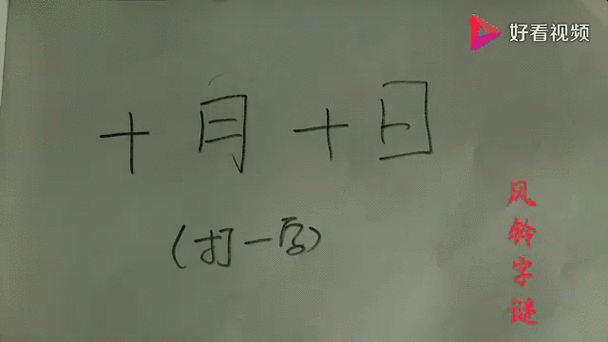 好看视频
十月十日
(打一字)
风铃字谜